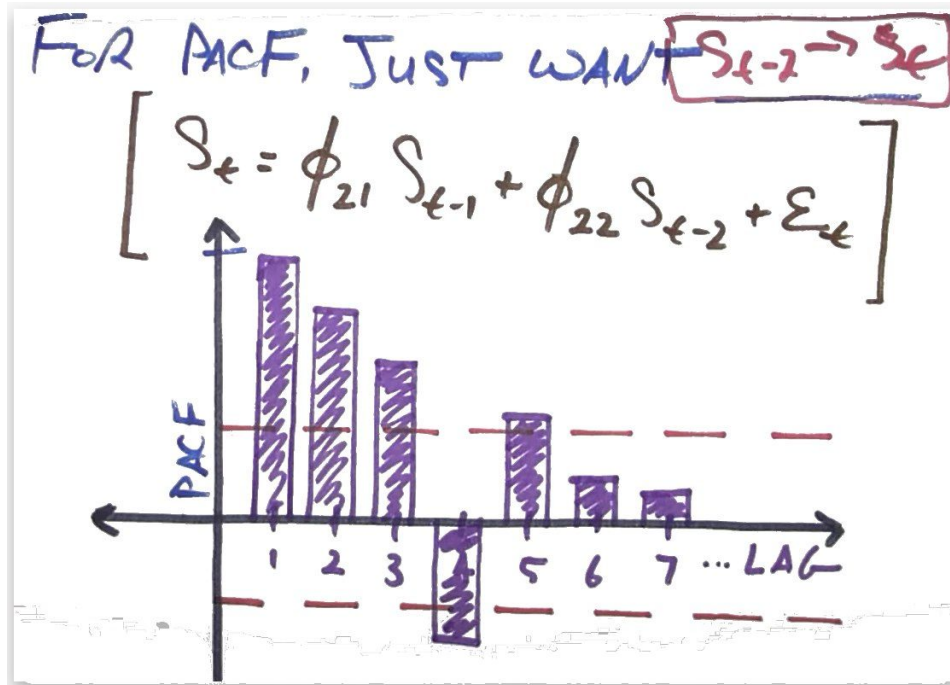 FOR PACF, JUST WANT S_{t-2} → S_t
S_t = ϕ_{21} S_{t-1} + ϕ_{22} S_{t-2} + ε_t
PACF
1 2 3 4 5 6 7 ... LAG